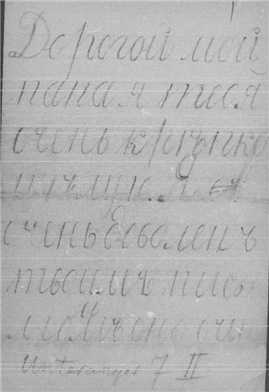 Дорогой мой
папа я тебя
очень крѣпко
цѣлую. Я
очень доволенъ
твоимъ пис
момъ оно очен
7 II